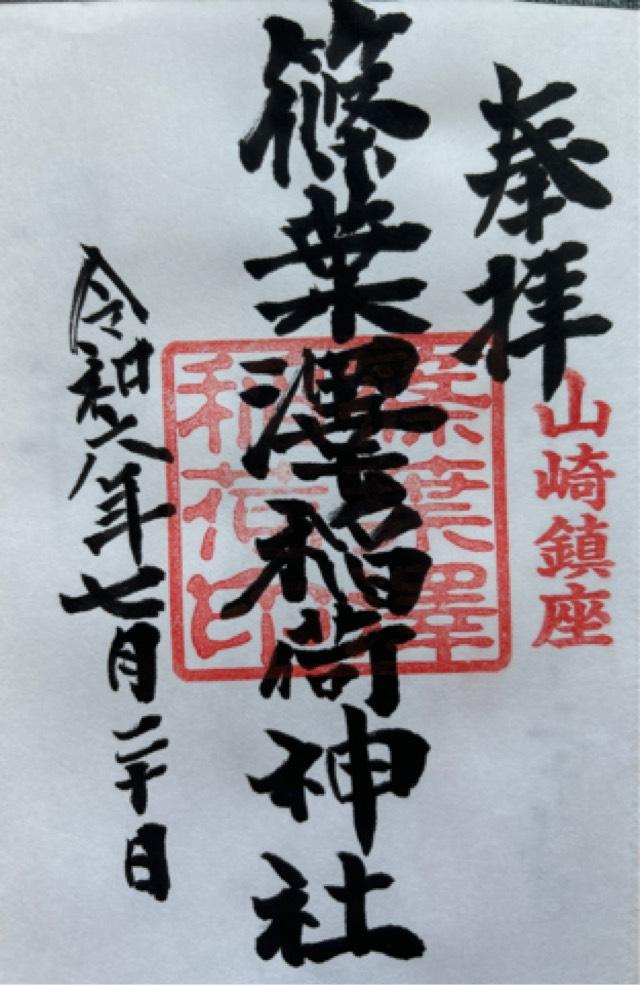 奉拝
山崎鎮座
篠葉澤稲荷神社
篠葉澤
稲荷印
令和六年七月二十日